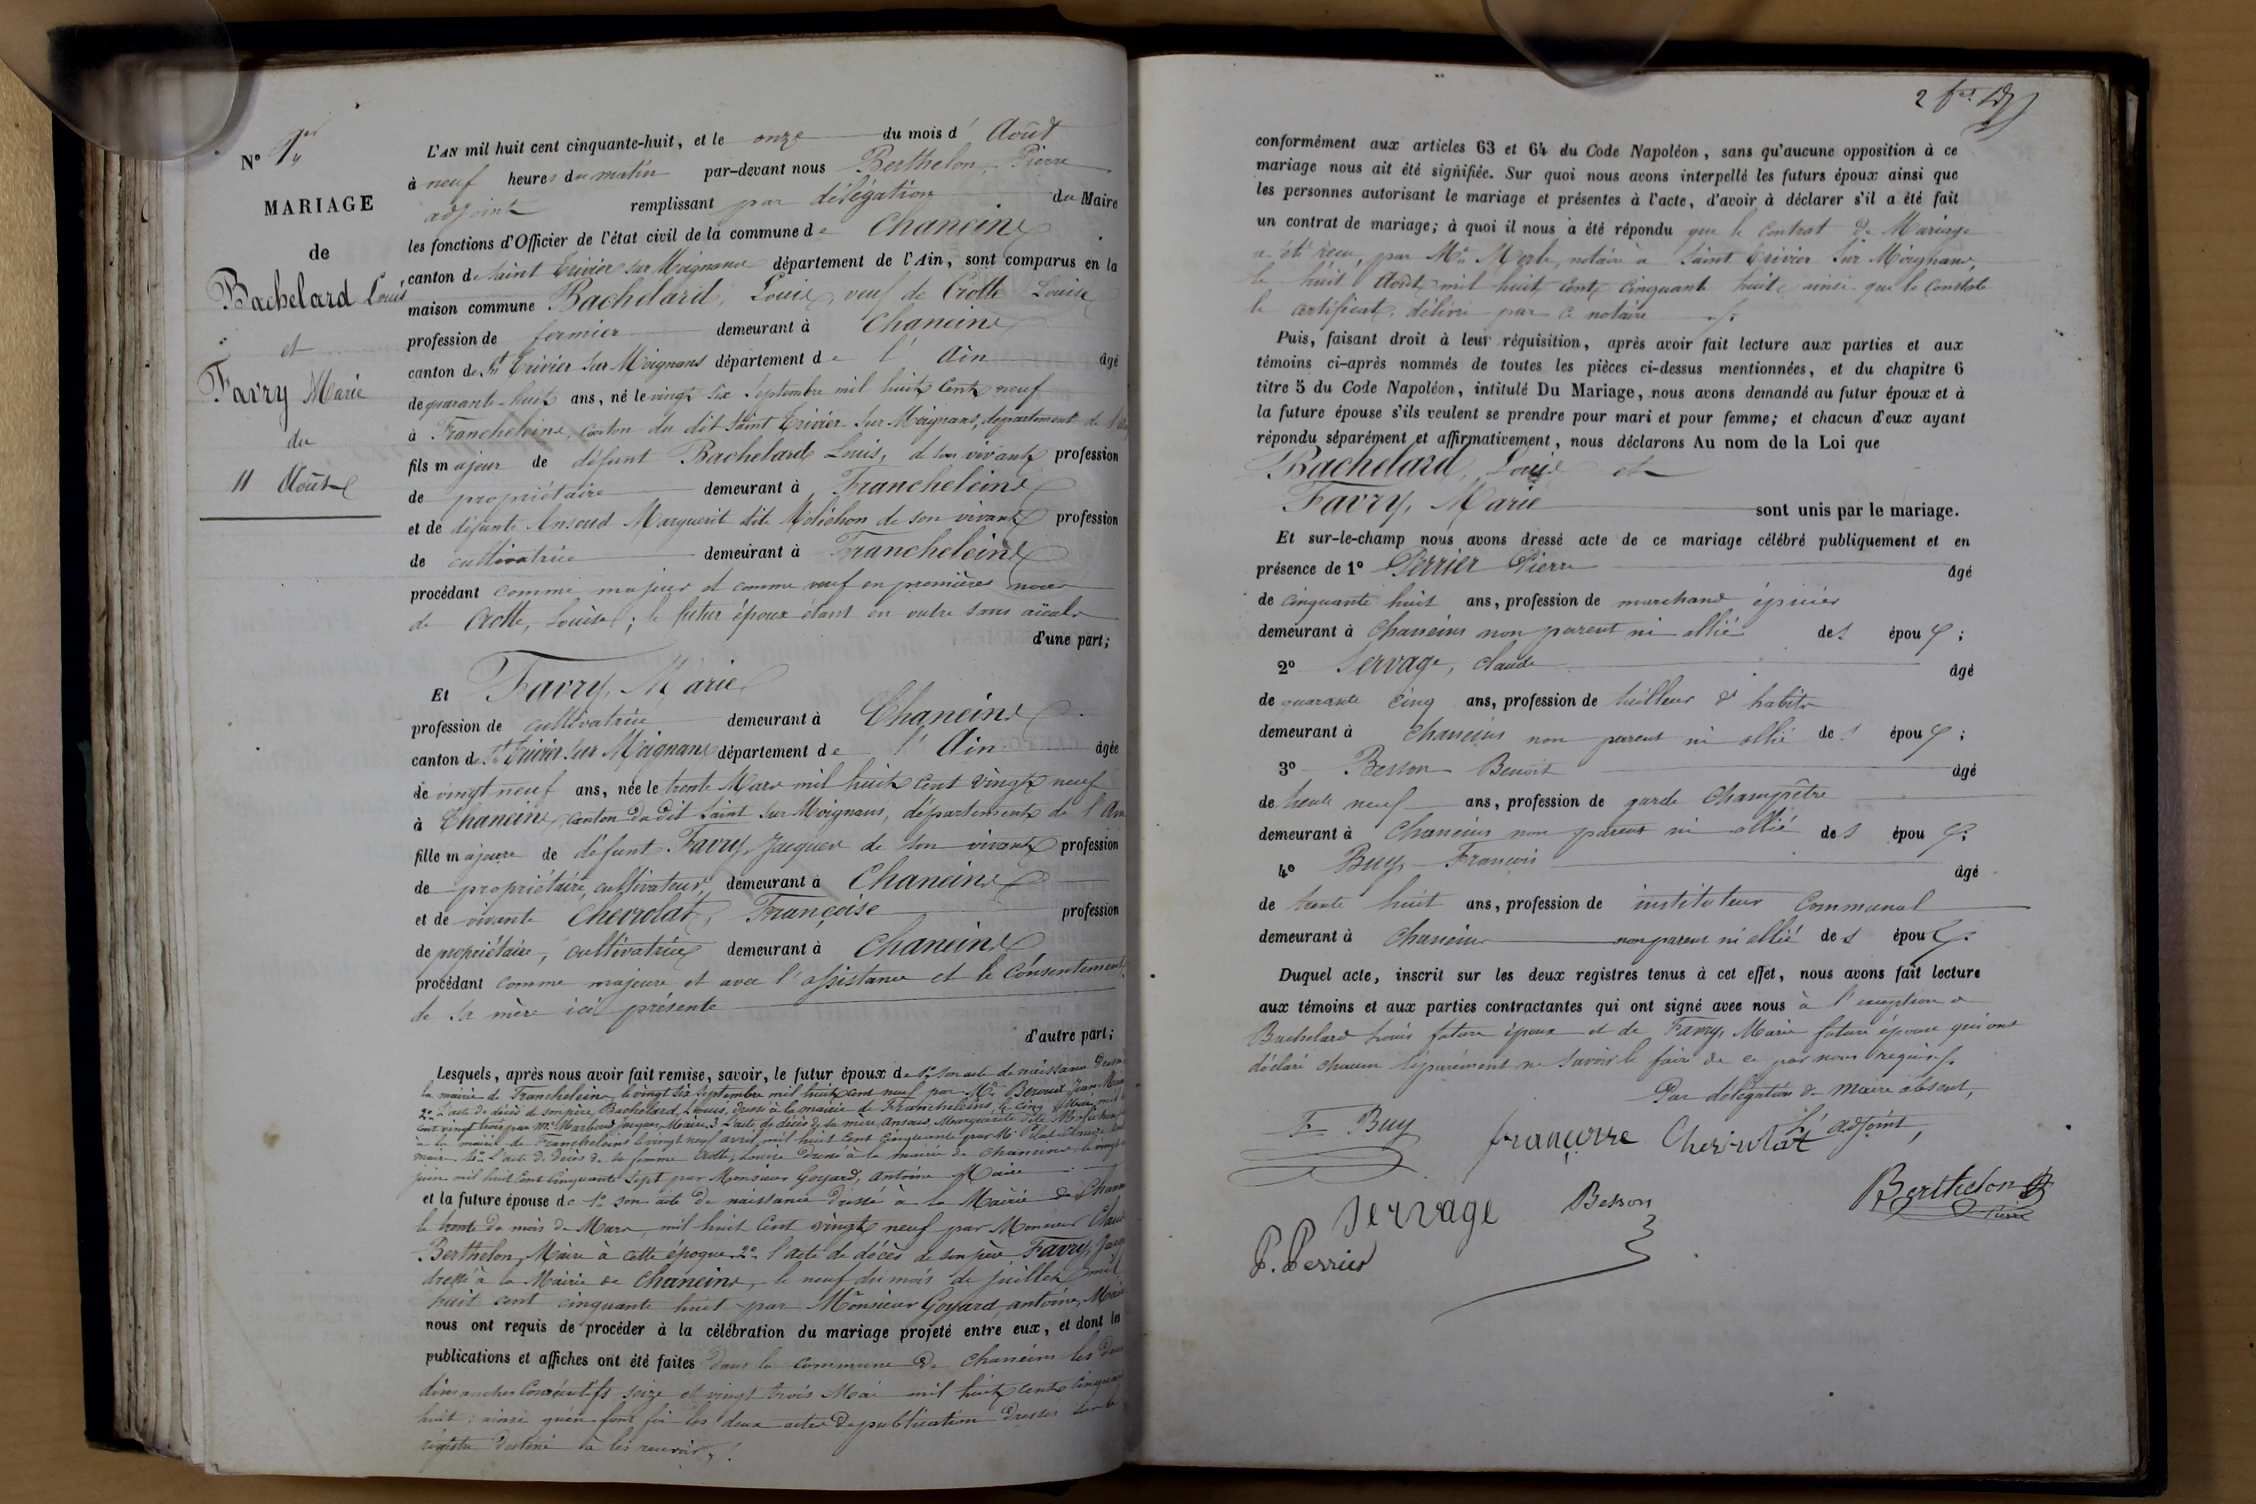 N° 1er
MARIAGE
de
Bachelard Louis
et
Favry Marie
du
11 Août
L'AN mil huit cent cinquante-huit, et le onze du mois d' Août
à neuf heures du matin par-devant nous Berthelon, Pierre
adjoint remplissant par délégation du Maire
les fonctions d'Officier de l'état civil de la commune de Chaneins
canton de Saint Trivier sur Moignans département de l'Ain, sont comparus en la
maison commune Bachelard, Louis, veuf de Crotte Louise
profession de fermier demeurant à Chaneins
canton de St Trivier sur Moignans département de l' Ain âgé
de quarante-huit ans, né le vingt six Septembre mil huit cent neuf
à Francheleins, canton du dit Saint Trivier sur Moignans, département de l'Ain
fils majeur de défunt Bachelard Louis, de son vivant profession
de propriétaire demeurant à Francheleins
et de défunte Ansoud Marguerit dite Meliéhon de son vivant profession
de cultivatrice demeurant à Francheleins
procédant comme majeur et comme veuf en premières noces
de Crotte, Louise; le futur époux étant en outre sans aïeuls
d'une part;
Et Favry, Marie
profession de cultivatrice demeurant à Chaneins
canton de St Trivier sur Moignans département de l' Ain âgée
de vingt neuf ans, née le trente Mars mil huit cent vingt neuf
à Chaneins canton du dit Saint sur Moignans, département de l'Ain
fille majeure de défunt Favry, Jacques de son vivant profession
de propriétaire, cultivateur, demeurant à Chaneins
et de vivante Chevrolat, Françoise profession
de propriétaire, cultivatrice demeurant à Chaneins
procédant comme majeure et avec l'assistance et le consentement
de sa mère ici présente
d'autre part;
Lesquels, après nous avoir fait remise, savoir, le futur époux de 1° son acte de naissance dressé
la mairie de Francheleins le vingt six Septembre mil huit cent neuf par Mr
2° L'acte de décès de son père Bachelard, Louis, dressé à la mairie de Francheleins le cinq
cent vingt trois par Mr Jacques, Maire, 3° L'acte de décès de sa mère Marguerite dite
à la mairie de Francheleins le vingt neuf avril mil huit cent cinquante par Mr Claude
maire. 4° L'acte de décès de sa femme Crotte, Louise dressé à la mairie de Chaneins le vingt
juin mil huit cent cinquante sept par Monsieur Goyard, Antoine Maire
et la future épouse de 1° son acte de naissance dressé à la Mairie de
le trente du mois de Mars mil huit cent vingt neuf par Monsieur
Berthelon, Maire à cette époque. 2° l'acte de décès de son père Favry,
dressé à la Mairie de Chaneins, le neuf du mois de juillet mil
huit cent cinquante huit par Monsieur Goyard, antoine, Maire
nous ont requis de procéder à la célébration du mariage projeté entre eux, et dont les
publications et affiches ont été faites dans la commune de Chaneins les deux
dimanches consécutifs seize et vingt trois Mai mil huit cent cinquante
huit; ainsi qu'en font foi les deux actes de publication dressés sur le
registre destiné à les recevoir.
conformément aux articles 63 et 64 du Code Napoléon, sans qu'aucune opposition à ce
mariage nous ait été signifiée. Sur quoi nous avons interpellé les futurs époux ainsi que
les personnes autorisant le mariage et présentes à l'acte, d'avoir à déclarer s'il a été fait
un contrat de mariage; à quoi il nous a été répondu que le contrat de Mariage
a été reçu, par Me Merle, notaire à Saint Trivier Sur Moignans,
le huit Août mil huit cent cinquante huit ainsi que le constate
le certificat, délivré par ce notaire
Puis, faisant droit à leur réquisition, après avoir fait lecture aux parties et aux
témoins ci-après nommés de toutes les pièces ci-dessus mentionnées, et du chapitre 6
titre 5 du Code Napoléon, intitulé Du Mariage, nous avons demandé au futur époux et à
la future épouse s'ils veulent se prendre pour mari et pour femme; et chacun d'eux ayant
répondu séparément et affirmativement, nous déclarons Au nom de la Loi que
Bachelard, Louis et
Favry, Marie sont unis par le mariage.
Et sur-le-champ nous avons dressé acte de ce mariage célébré publiquement et en
présence de 1° Perrier Pierre âgé
de cinquante huit ans, profession de marchand épicier
demeurant à Chaneins non parent ni allié des époux;
2° Servage, Claude âgé
de quarante cinq ans, profession de tailleur d'habits
demeurant à Chaneins non parent ni allié des époux;
3° Besson Benoit âgé
de trente neuf ans, profession de garde Champêtre
demeurant à Chaneins non parent ni allié des époux;
4° Buy François âgé
de trente huit ans, profession de instituteur Communal
demeurant à Chaneins non parent ni allié des époux.
Duquel acte, inscrit sur les deux registres tenus à cet effet, nous avons fait lecture
aux témoins et aux parties contractantes qui ont signé avec nous à l'exception de
Bachelard Louis futur époux et de Favry, Marie future épouse qui ont
déclaré chacun séparément ne savoir le faire de ce par nous requis.
Par délégation du maire absent,
L'adjoint,
F Buy
françoise Chevrolat
Servage
Besson
Berthelon
Pierre
P. Perrier